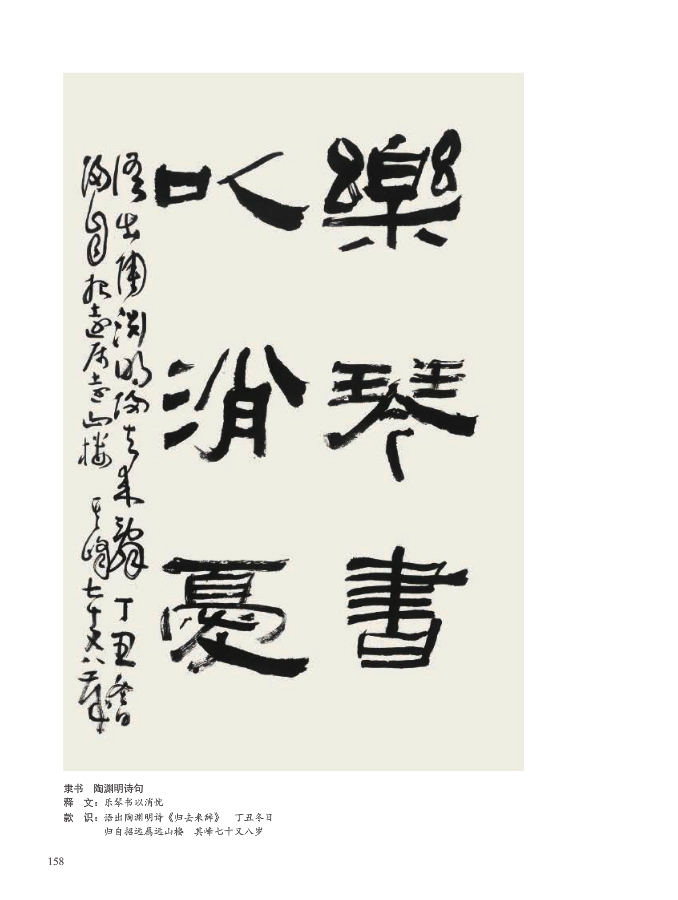 樂琴書
以消憂
語出陶淵明歸去来辭 丁丑冬日
歸自招遠居遠山樓 其峰七十又八歲
隶书 陶渊明诗句
释 文：乐琴书以消忧
款 识：语出陶渊明诗《归去来辞》 丁丑冬日
归自招远居远山楼 其峰七十又八岁
158